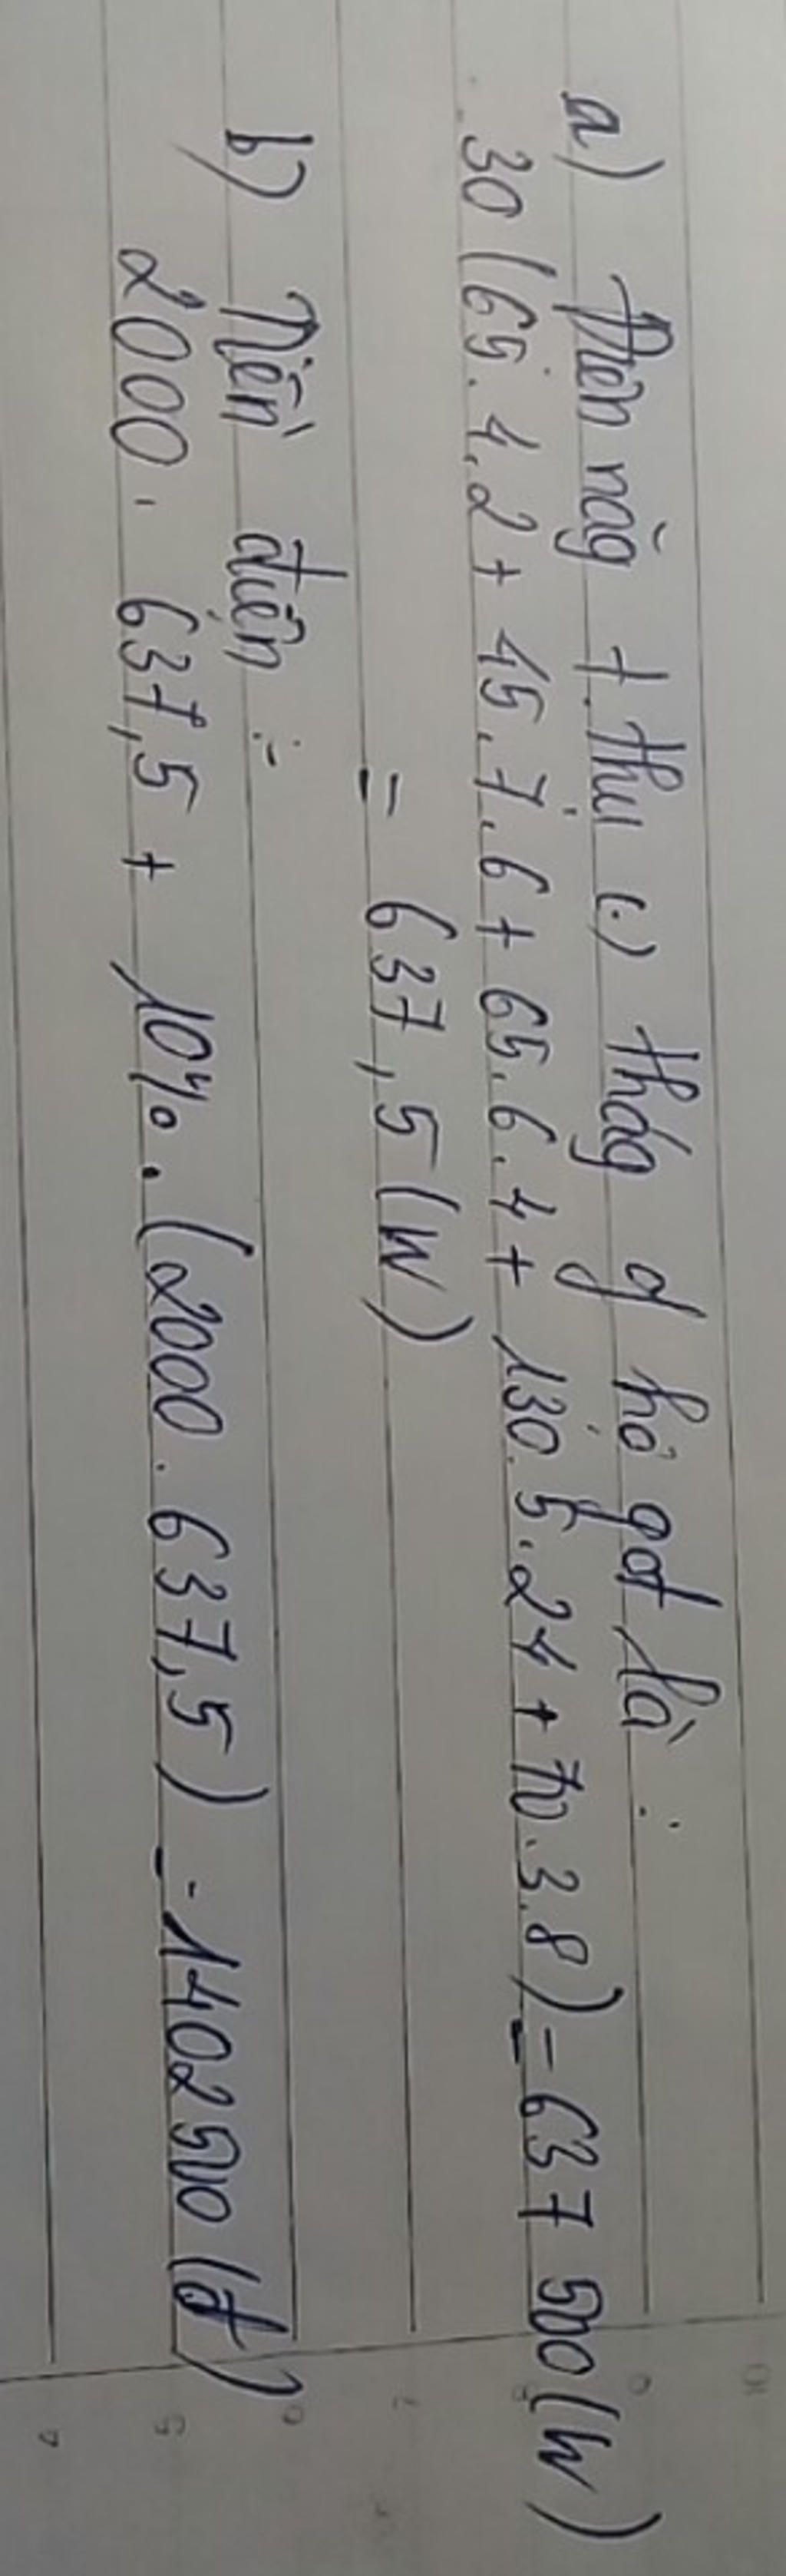 a) Điện năg t.thụ (.) thág of hộ gđ là :
30 (65.4.2 + 45.7.6 + 65.6.4 + 130.5.24 + 70.3.8) = 637 500 (W)
= 637,5 (W)
b) Tiền điện :
2000. 637,5 + 10%. (2000. 637,5) = 1402500 (đ)